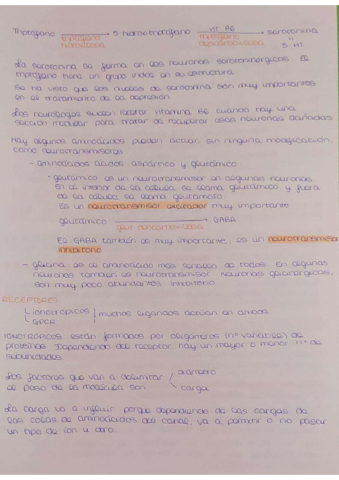 Triptófano → 5 hidroxitriptófano → serotonina
triptófano hidroxilasa
vit. B6
descarboxilasa
5-HT
• La serotonina se forma en las neuronas serotoninérgicas. El
triptófano tiene un grupo indol en su estructura.
Se ha visto que los niveles de serotonina son muy importantes
en el tratamiento de la depresión.
• Los neurólogos suelen recetar vitamina B6 cuando hay una
sección medular para tratar de recuperar esas neuronas dañadas.
Hay algunos aminoácidos pueden actuar, sin ninguna modificación,
como neurotransmisores:
- aminoácidos ácidos aspártico y glutámico
• glutámico es un neurotransmisor en algunas neuronas.
En el interior de la célula se llama glutámico y fuera
de la célula se llama glutamato.
Es un neurotransmisor excitador muy importante
glutámico → GABA
glut. descarboxilasa
El GABA también es muy importante, es un neurotransmisor
inhibitorio
- glicina: es el aminoácido más sencillo de todos. En algunas
neuronas también es neurotransmisor. Neuronas glicinérgicas,
son muy poco abundantes. Inhibitorio
RECEPTORES
ionotrópicos
GPCR
muchos ligandos actúan en ambos
IONOTRÓPICOS: están formados por oligómeros (nº variables) de
proteínas. Dependiendo del receptor, hay un mayor o menor nº de
subunidades.
• Los factores que van a delimitar
el paso de la molécula son
diámetro
carga
• La carga va a influir porque dependiendo de las cargas de
las colas de aminoácidos del canal, va a permitir o no pasar
un tipo de ion u otro.